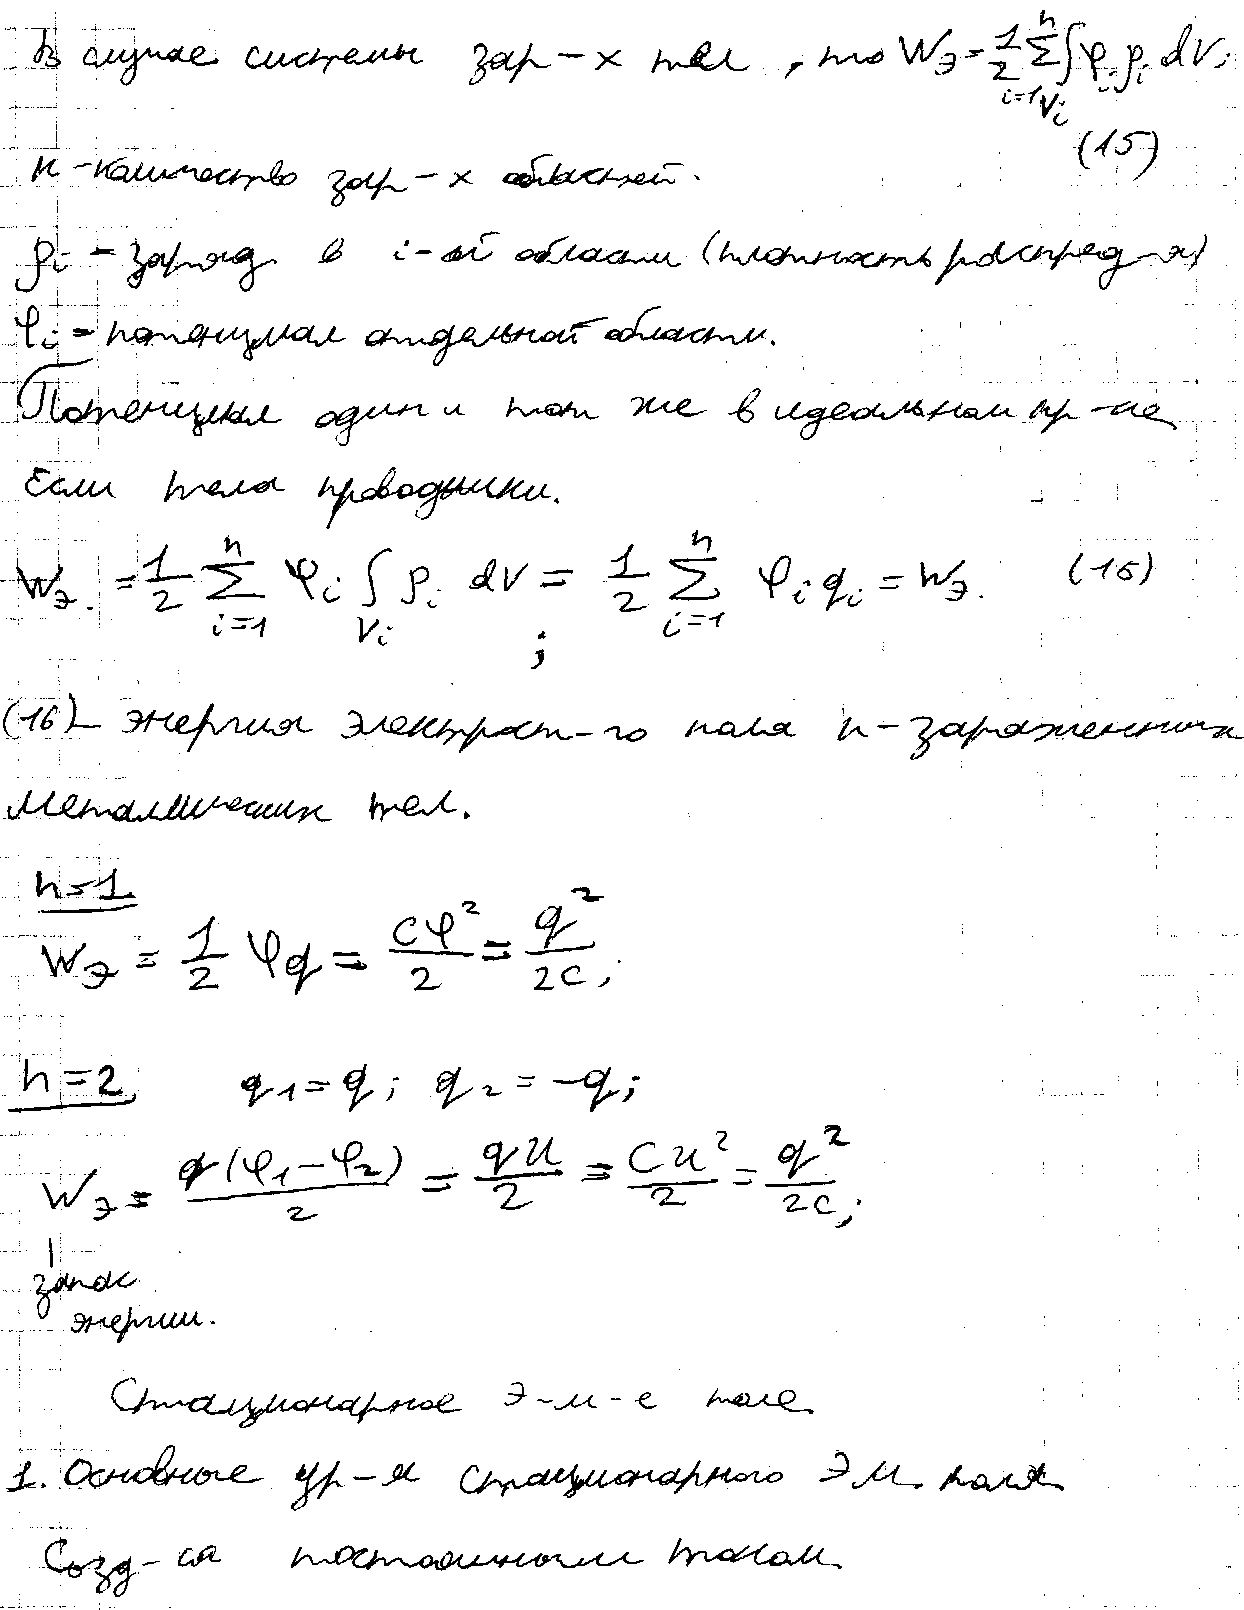 В случае системы зар-х тел, то Wэ = 1/2 Σ(i=1..n) ∫Vi φi ρi dV;
(15)
n - количество зар-х областей.
ρi - заряд в i-ой области (плотность распред-я)
φi - потенциал отдельной области.
Потенциал один и тот же в идеальном пр-ке
Если тела проводники.
Wэ. = 1/2 Σ(i=1..n) φi ∫Vi ρi dV = 1/2 Σ(i=1..n) φi qi = Wэ. (16)
;
(16) - энергия электрост-го поля n-заряженных
металлических тел.
n=1
Wэ = 1/2 φq = cφ²/2 = q²/2c;
n=2 q1=q; q2=-q;
Wэ = q(φ1-φ2)/2 = qU/2 = CU²/2 = q²/2C;
запас
энергии.
Стационарное э-м-е поле.
1. Основные ур-я стационарного эм. поля.
Созд-ся постоянным током.